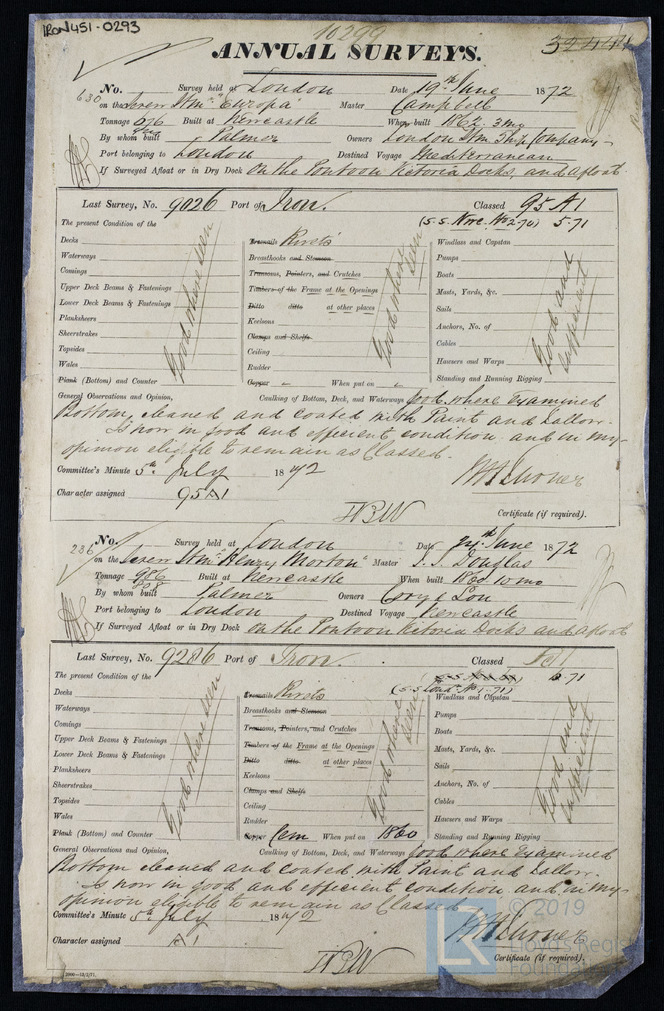 IRON451-0293
10299
ANNUAL SURVEYS.
No. Survey held at London Date 19th June 1872
630
on the Screw Stmr "Europa" Master Campbell
Tonnage Built at Newcastle When built 1862. 3 mo
By whom built Palmer Owners London Stm Ship Company
Port belonging to London Destined Voyage Mediterranean
If Surveyed Afloat or in Dry Dock On the Pontoon Victoria Docks, and afloat
Last Survey, No. 9026 Port of Iron. Classed 95 A1
(S.S. Nwc. No 2 70) 5.71
The present Condition of the
Decks Treenails Rivets Windlass and Capstan
Waterways Breasthooks and Stemson Pumps
Comings Transoms, Pointers, and Crutches Boats
Upper Deck Beams & Fastenings Timbers of the Frame at the Openings Masts, Yards, &c.
Lower Deck Beams & Fastenings Ditto ditto at other places Sails
Planksheers Keelsons Anchors, No. of
Sheerstrakes Clamps and Shelfs Cables
Topsides Ceiling Hawsers and Warps
Wales Rudder Standing and Running Rigging
Plank (Bottom) and Counter Copper When put on
Good where seen
Good where seen
Good and sufficient
General Observations and Opinion, Caulking of Bottom, Deck, and Waterways Good where Examined
Bottom, cleaned and coated with Paint and Tallow.
Is now in good and efficient condition and in my
opinion eligible to remain as Classed.
Committee's Minute 5th July 1872
Character assigned 95 A1
Certificate (if required).
No. Survey held at London Date 24th June 1872
236
on the Screw Stmr "Henry Morton" Master Douglas
Tonnage 986 Built at Newcastle When built 1860 10 mo
By whom built Palmer Owners Cory & Son
Port belonging to London Destined Voyage Newcastle
If Surveyed Afloat or in Dry Dock On the Pontoon Victoria Docks and afloat
Last Survey, No. 9286 Port of Iron. Classed A1
(S.S. Lond. No 1-71) 71
The present Condition of the
Decks Treenails Rivets Windlass and Capstan
Waterways Breasthooks and Stemson Pumps
Comings Transoms, Pointers, and Crutches Boats
Upper Deck Beams & Fastenings Timbers of the Frame at the Openings Masts, Yards, &c.
Lower Deck Beams & Fastenings Ditto ditto at other places Sails
Planksheers Keelsons Anchors, No. of
Sheerstrakes Clamps and Shelfs Cables
Topsides Ceiling Hawsers and Warps
Wales Rudder Standing and Running Rigging
Plank (Bottom) and Counter Copper Cem When put on 1860
Good where seen
Good where seen
Good and sufficient
General Observations and Opinion, Caulking of Bottom, Deck, and Waterways Good where Examined
Bottom cleaned and coated with Paint and Tallow.
Is now in good and efficient condition and in my
opinion eligible to remain as Classed
Committee's Minute 5th July 1872
Character assigned A1
Certificate (if required).
© 2019
Lloyd's Register
Foundation